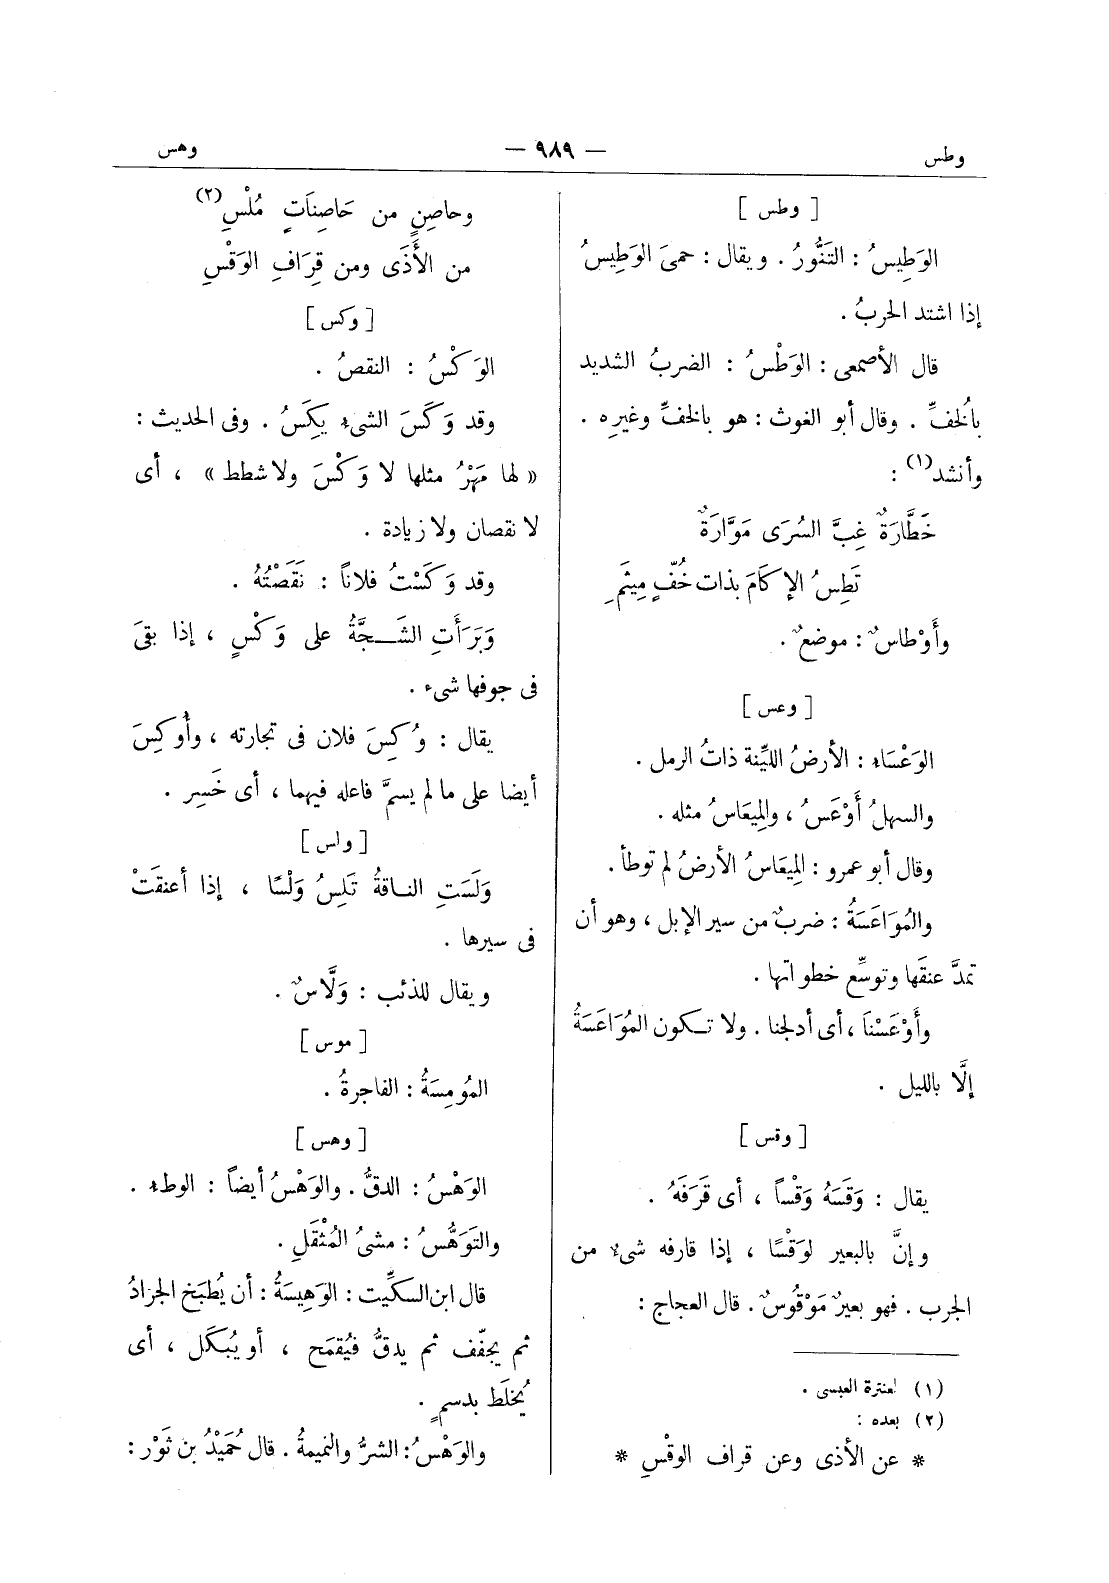 وطس
— ٩٨٩ —
وهس
[ وطس ]
الوَطِيسُ : التَنُّورُ . ويقال : حمىَ الوَطِيسُ
إذا اشتد الحربُ .
قال الأصمعى : الوَطْسُ : الضربُ الشديد
بالُخفِّ . وقال أبو الغوث : هو بالخفِّ وغيرِه .
وأنشد(١) :
خَطَّارَةٌ غِبَّ السُرَى مَوَّارَةٌ
تَطِسُ الإكَامَ بذات خُفٍّ مِيثَمِ
وأَوْطاسٌ : موضعٌ .
[ وعس ]
الوَعْسَاء : الأرضُ الليِّنة ذاتُ الرمل .
والسهلُ أَوْعَسُ ، والمِيعَاسُ مثله .
وقال أبو عمرو : المِيعَاسُ الأرضُ لم توطأ .
والمُوَاعَسَةُ : ضربٌ من سير الإبل ، وهو أن
تمدَّ عنقَها وتوسِّع خطواتها .
وأَوْعَسْنَا ، أى أدلجنا . ولا تكون المُوَاعَسَةُ
إلَّا بالليل .
[ وقس ]
يقال : وَقَسَهُ وَقْساً ، أى قَرَفَهُ .
وإنَّ بالبعير لوَقْسًا ، إذا قارفه شىءٌ من
الجرب . فهو بعيرٌ مَوْقُوسٌ . قال العجاج :
(١) لعنترة العبسى .
(٢) بعده :
* عن الأذى وعن قراف الوقْسِ *
وحاصِنٍ من حَاصِنَاتٍ مُلْسِ(٢)
من الأَذَى ومن قِرَافِ الوَقْسِ
[ وكس ]
الوَكْسُ : النقصُ .
وقد وَكَسَ الشىء يكِسُ . وفى الحديث :
« لها مَهْرُ مثلها لا وَكْسَ ولا شطط » ، أى
لا نقصان ولا زيادة .
وقد وَكَسْتُ فلاناً : نَقَصْتُهُ .
وَبَرَأَتِ الشَّجَّةُ على وَكْسٍ ، إذا بقىَ
فى جوفها شىء .
يقال : وُكِسَ فلان فى تجارته ، وأُوكِسَ
أيضا على ما لم يسمَّ فاعله فيهما ، أى خَسِر .
[ ولس ]
وَلَسَتِ الناقةُ تَلِسُ وَلْسًا ، إذا أعنقَتْ
فى سيرها .
ويقال للذئب : وَلَّاسٌ .
[ موس ]
المُومِسَةُ : الفاجرةُ .
[ وهس ]
الوَهْسُ : الدقُّ . والوَهْسُ أيضاً : الوطء .
والتَوَهُّسُ : مشىُ المُثْقَلِ .
قال ابن السكِّيت : الوَهِيسَةُ : أن يُطبَخ الجرادُ
ثم يجفّف ثم يدقُّ فيُقمَح ، أو يُبكَل ، أى
يُخلَط بدسمٍ .
والوَهْسُ : الشرُّ والنميمةُ . قال حُمَيْدُ بن ثَوْر :